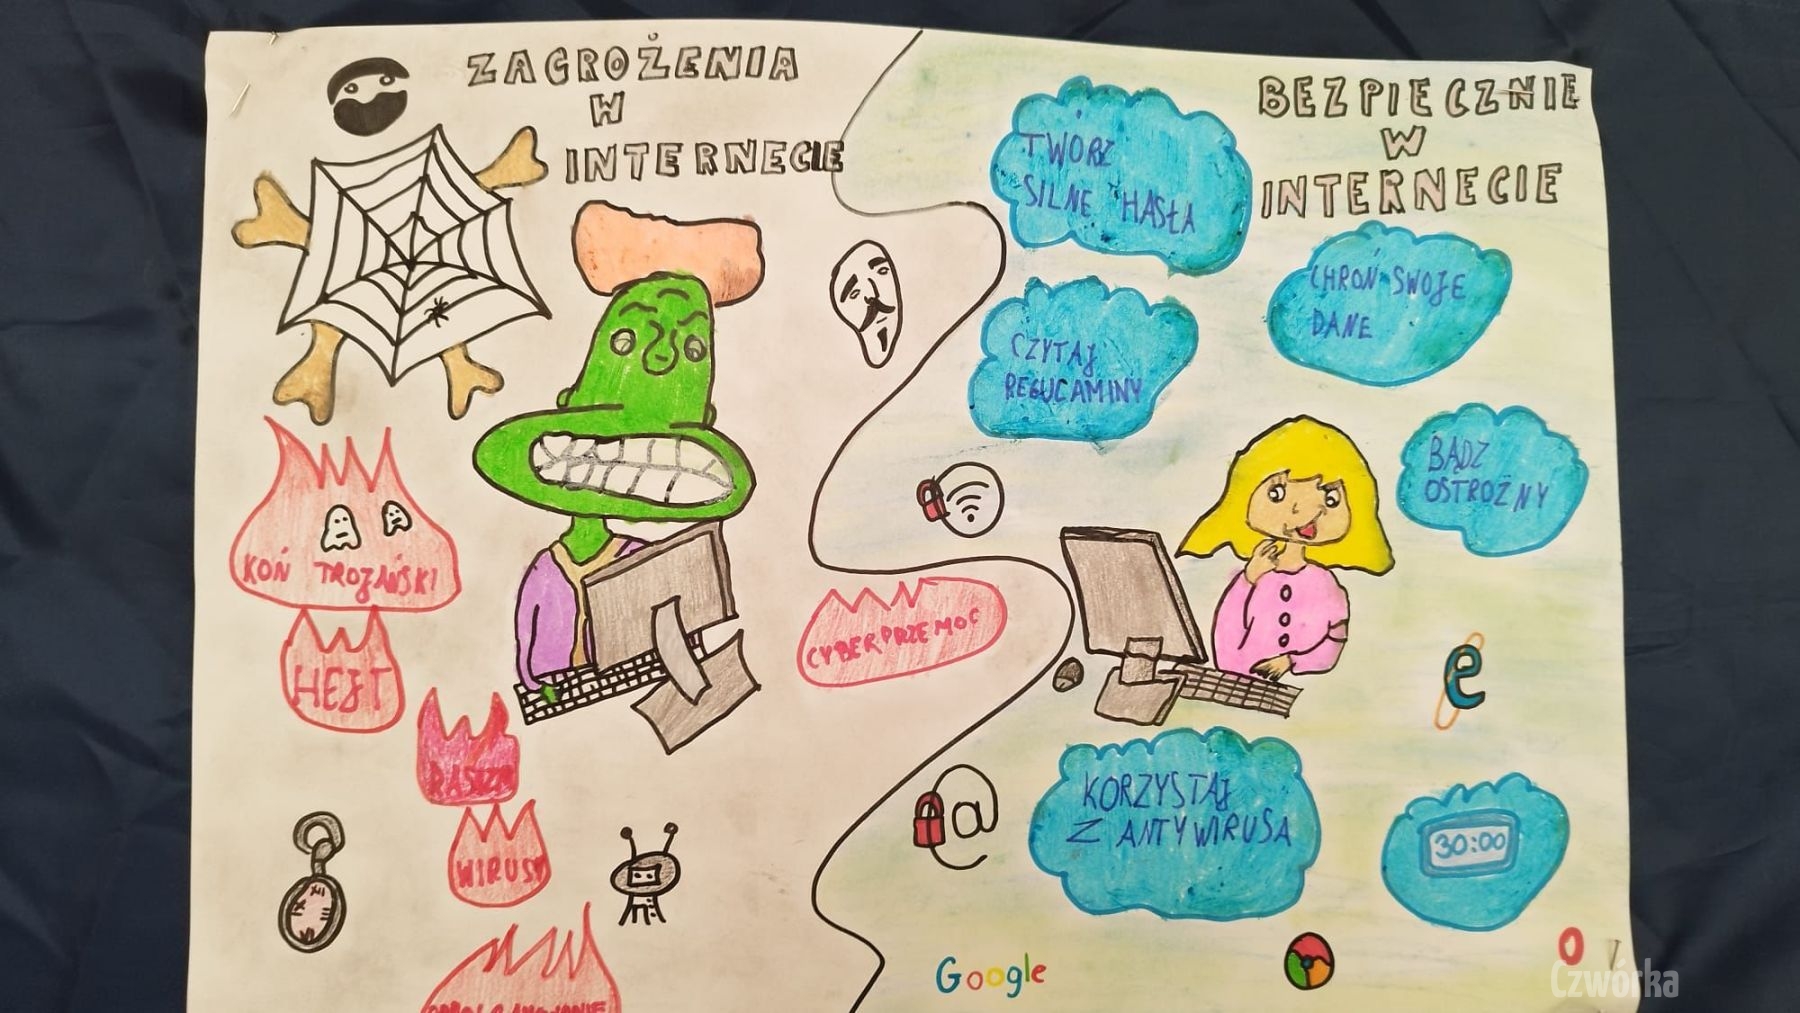 ZAGROŻENIA
W
INTERNECIE
KOŃ TROJAŃSKI
HEJT
WIRUSY
CYBERPRZEMOC
BEZPIECZNIE
W
INTERNECIE
TWÓRZ
SILNE HASŁA
CHROŃ SWOJE
DANE
CZYTAJ
REGULAMINY
BĄDZ
OSTROŻNY
e
@
KORZYSTAJ
Z ANTYWIRUSA
30:00
Google
O
Czwórka